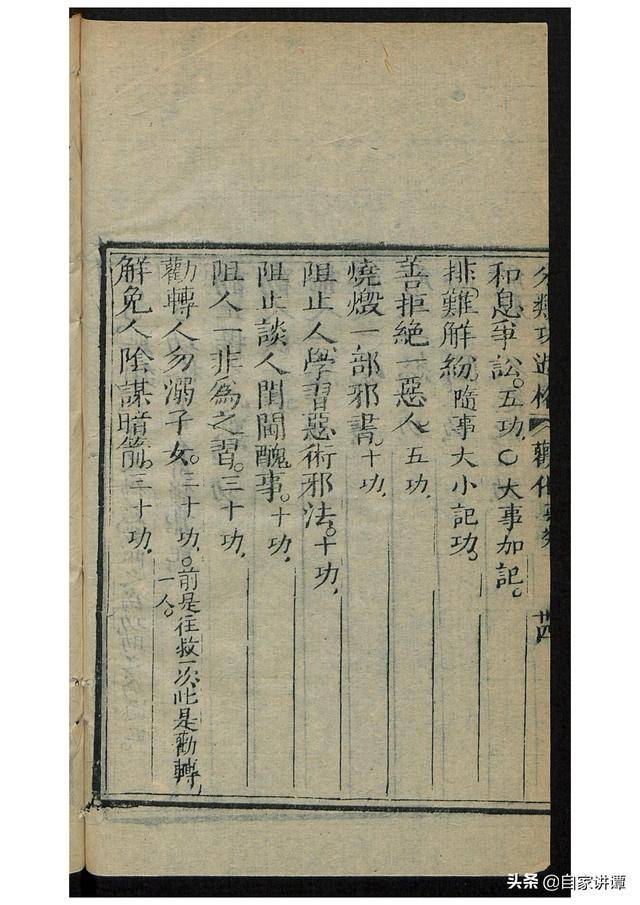 分類功過格 勸化 類 廿四
和息爭訟。五功。○大事加記。
排難解紛。隨事大小記功。
善拒絕一惡人。五功。
燒燬一部邪書。十功。
阻止人學習惡術邪法。十功。
阻止談人閨閫醜事。十功。
阻人一非為之習。三十功。
勸轉人勿溺子女。三十功。前是往救一次此是勸轉一人。
解免人陰謀暗箭。三十功。
头条 @自家讲谭